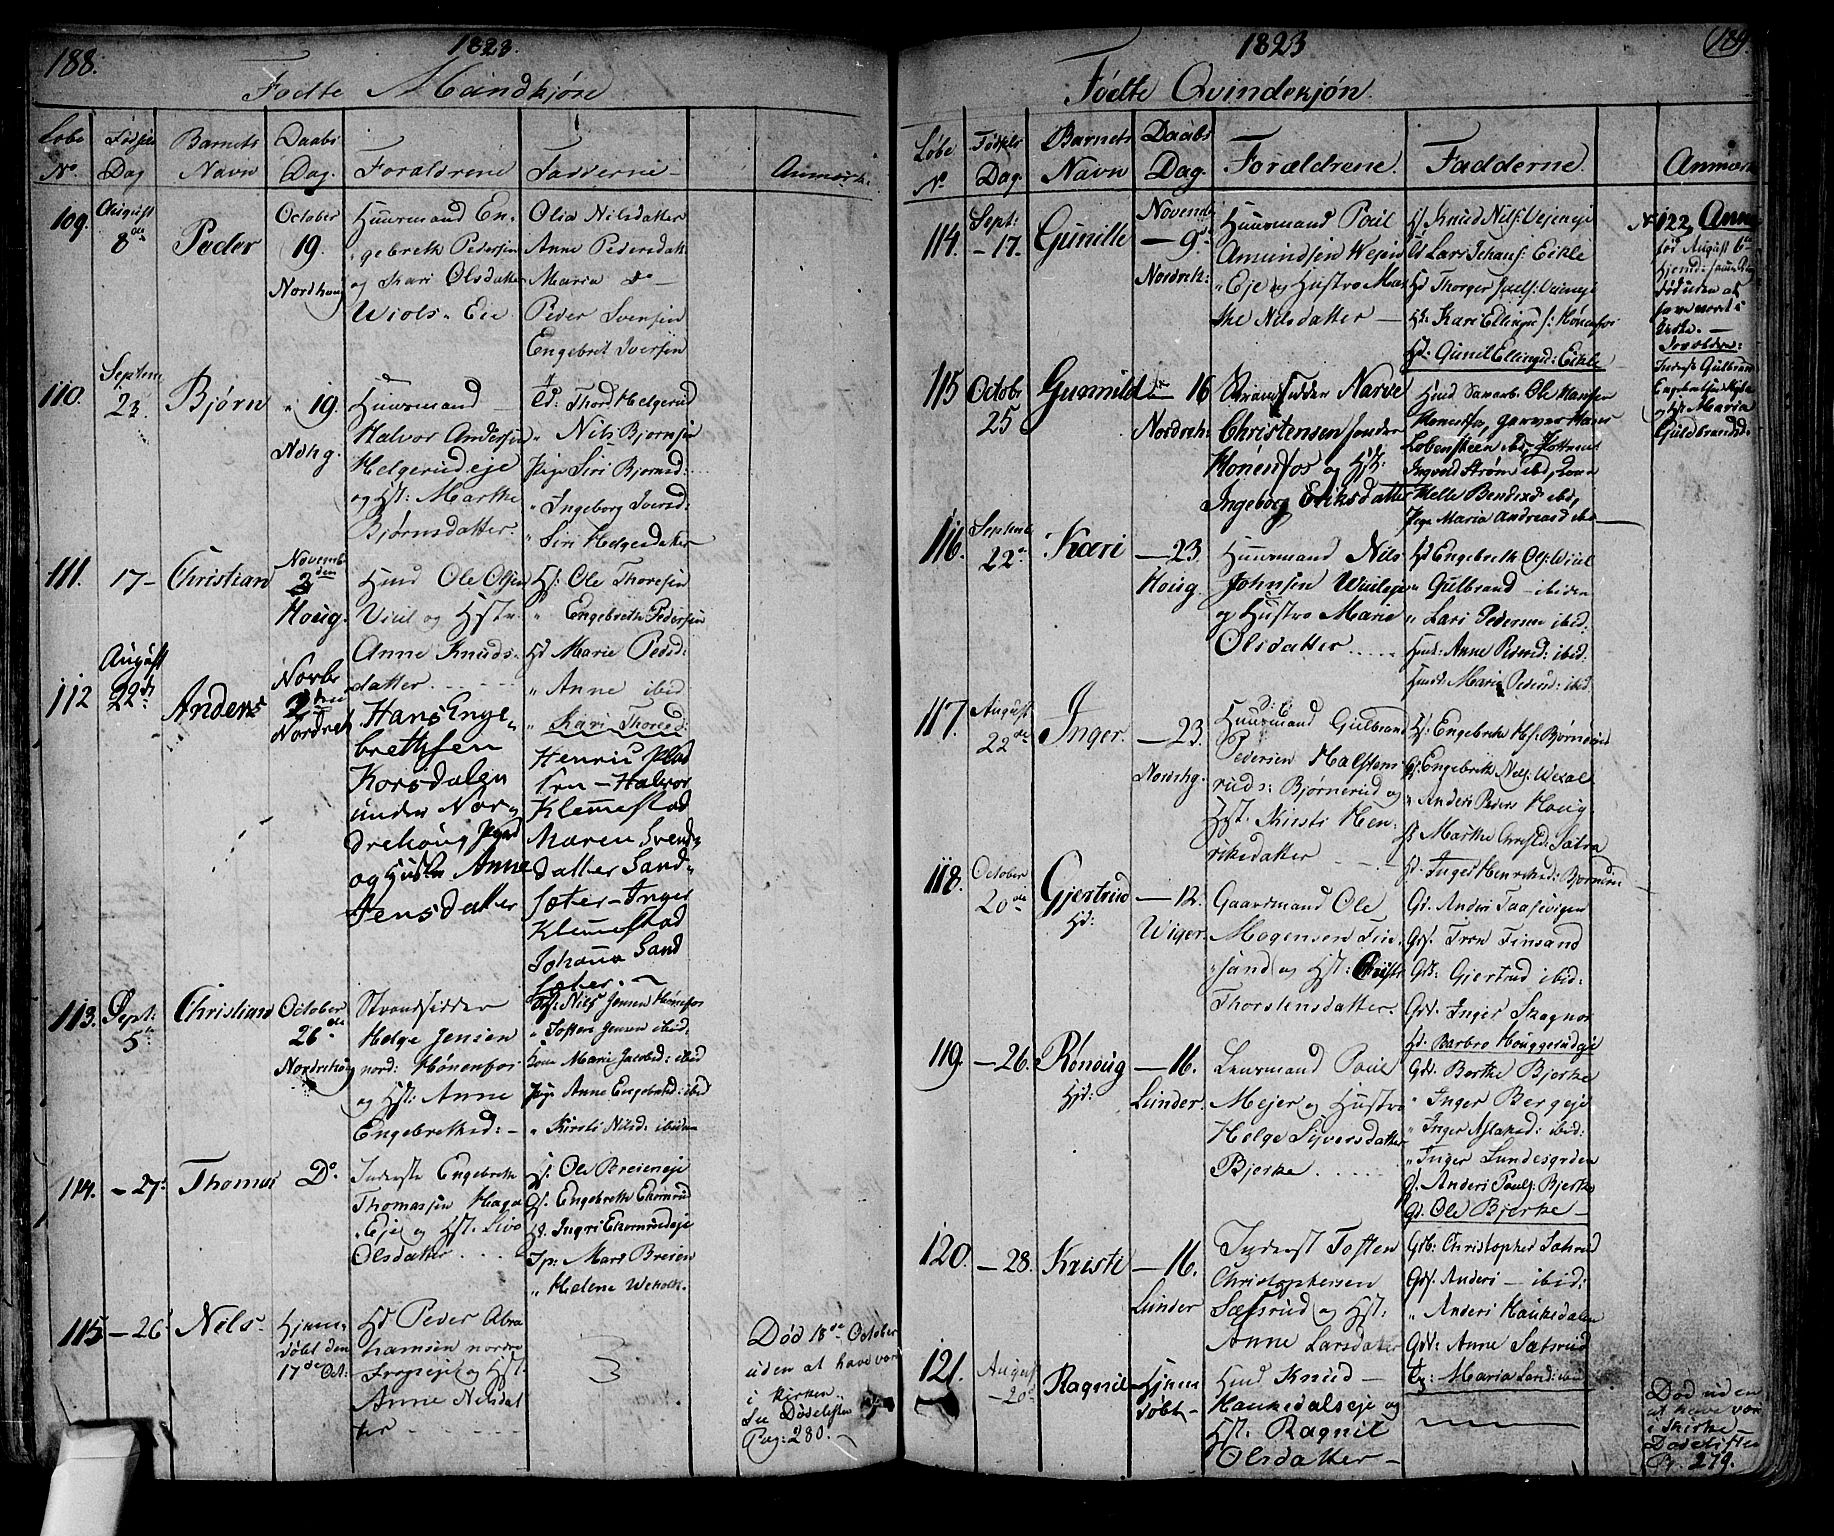 188.
1823.
Fødte Mandkjøn
Løbe No
Fødsels Dag
Barnets Navn
Daabs Dag.
Forældrene
Fadderne
Anmærk.
109.
August
8de
Peder
October
19.
Nordhoug
Huusmand En-
gebreth Pedersen
og Kari Olsdatter
Wiols-Eie
Olia Nilsdatter
Anne Pedersdatt
Maria do
Peder Svensen
Engebret Iversen
110.
Septem
23.
Bjørn
19.
Ndhg.
Huusmand
Halvor Andersen
Helgerudeje
og Hst: Marthe
Bjørnsdatter.
Thord Helgerud
" Nils Bjørnsen
Pige Siri Bjørnsd:
" Ingeborg Iversd:
" Siri Helgesdatter
111.
17-
Christian
Novemb
2den
Houg.
Hmd Ole Olsen
Viul og Hstr.
Anne Knuds-
datter.
Hf: Ole Thoresen
" Engebreth Pedersen
Hd Marie Pedsd:
" Anne ibid
" Kari Thoresd:
112
August
22de
Anders
Novbr
2den
Nordreh
Hans Enge-
brethsen
Korsdalen
under Nor-
drehoug
og Hustru Anne
Jensdatter
Henric Klad
Halvor
Klemmestad
Maren Svend-
datter Sand-
søter - Inger
Klemmestad
Johanne Sand
søter.
113.
Sept:
5te
Christian
October
26de
Nordrehoug
Strandsidder
Helge Jensen
nord: Hønenfos
og Hst: Anne
Engebrethsd:
Nils Jensen Hønefos
" Tosten Jensen ibid:
Kone Marie Jacobsd: ibid
Pige Anne Engebrethsd: ibid
" Kirsti Nilsd: ibidem
114.
- 27.
Thomas
Do
Inderste Engebreth
Thomassen Haga
Eje og Hst: Live
Olsdatter
Ole Breieneje
Engebreth Ekornrud
Ingri Ekornrudeje
Mari Breien
" Helene Weholt.
115
- 26
Nils
Hjem-
døbt den
17de Oct:
Hd Peder Abra
hamsen nordre
Frogeje og Hst.
Anne Nilsdat
ter
Død 18de October
uden at have vær
i Kirken.
See Dødelisten
Pag: 280.
189.
1823
Fødte Qvindekjøn
Løbe No
Fødsels Dag.
Barnets Navn
Daabs Dag.
Forældrene.
Fadderne
Anmærk
114.
Sept:
- 17.
Gunille
Novemb
- 9de
Nordreh:
Huusmand Poul
Amundsen Wejen
Eje og Hustro Mar
the Nilsdatter
Knud Nils: Vejeneje
Lars Johans: Eikle
Thorger
Kari Ellingsd: Hønenfos
Gunil Ellingsd: Eikle
No 122, Anne
fød August 6te
Hjemd: samme Dag
død uden at
have vært i
Kirke.
Forældre:
Inderst Gulbrand
Engebretsen
og Hst Maria
Guldbrandsd.
115
Octobr
25
Gunnild
16
Nordreh:
Strandsidder Narve
Christensen sønder
Hønenfos og Hst:
Ingeborg Eriksdatter
Ole Hansen
Hønenfos, Garver Hans
Lobensteen ibid,
Ingvald Strøm ibid, Kone
Helle Bendixd ibid,
Pige Maria Andreasd ibid
116.
Septemb
22de
Kari
- 23.
Houg.
Huusmand Nils
Johnsen Wiuleje
og Hustro Marie
Olsdatter
Hd Engebreth Ols: Wiul
" Gulbrand - ibidem
" Lars Pedersen ibid:
Anne Pedersd: ibid:
Marie Pedersd: ibid:
117.
August
22de
Inger.
- 23.
Nordrhg.
Huusmand Gulbrand
Pedersen Halstens
ruds: Bjørnerud og
Hst. Kirsti Hen-
rikedatter
Engebreth Bjørnerud
Engebreth Nils: Wexal
" Anders Peders Houg
Marthe Christ: Sætra
Inger Henriksd: Bjørnerud
118.
October
20de
Gjertrud
Hd:
- 12.
Wiger.
Gaardmand Ole
Mogensen Fin-
sand og Hst: Christi
Thorstensdatter.
Gd. Anders
Tron Finsand
Gjertrud ibid:
Inger Skagnos
Barbro Houggerudeje
119.
- 26.
Rønoug
Hjd:
- 16.
Lunder.
Lensmand Poul
Mejer og Hustro
Helge Sjversdatter
Bjerke
Berthe Bjerke
" Inger Bergeje
" Inger Aslaksd: ibid:
" Inger Lundesgrden
Anders Pauls: Bjerke
Ole Bjerke
120.
- 28.
Kristi
- 16.
Lunder
Inderst Tosten
Christophersen
Sætsrud og Hst:
Anne Larsdatter
Christopher Sætrud
Anders - ibid:
" Anders Haukedalen
Anne Sætsrud
Maria
121.
August
- 20de
Ragnil
Hjem
døbt
Hmd Knud
Haukedalseje og
Hst. Ragnil
Olsdatter
Død uden
at have vær
i Kirke
Dødelisten
P. 279.